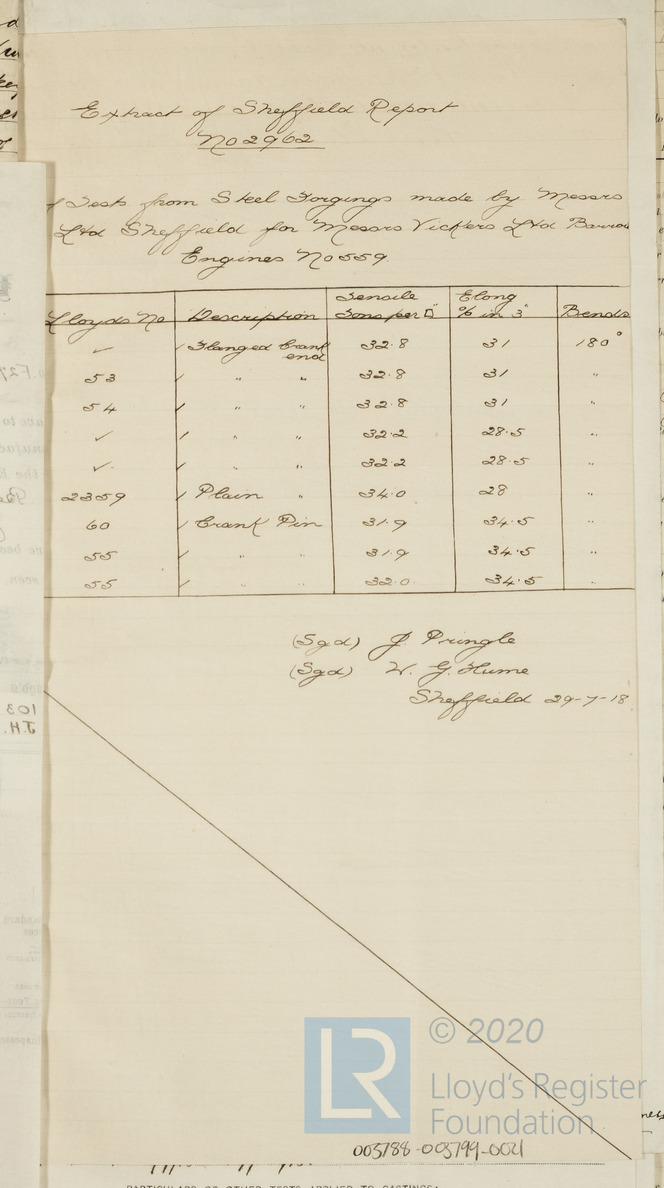 Extract of Sheffield Report
No 2962
Tests from Steel Forgings made by Messrs
Ltd Sheffield for Messrs Vickers Ltd Barrow
Engines No 559.
Lloyds No Description Tensile Tons per □" Elong % in 3" Bends
✓ 1 Flanged Crank end 32.8 31 180°
53 1 " " 32.8 31 "
54 1 " " 32.8 31 "
✓ 1 " " 32.2 28.5 "
✓ 1 " " 32.2 28.5 "
2359 1 Plain " 34.0 28 "
60 1 Crank Pin 31.9 34.5 "
55 1 " " 31.9 34.5 "
55 1 " " 32.0 34.5 "
(Sgd) J. Pringle
(Sgd) W. G. Hume
Sheffield 29-7-18
LR
© 2020
Lloyd's Register
Foundation
003788-003799-0021
PARTICULARS OF OTHER TESTS APPLIED TO CASTINGS: